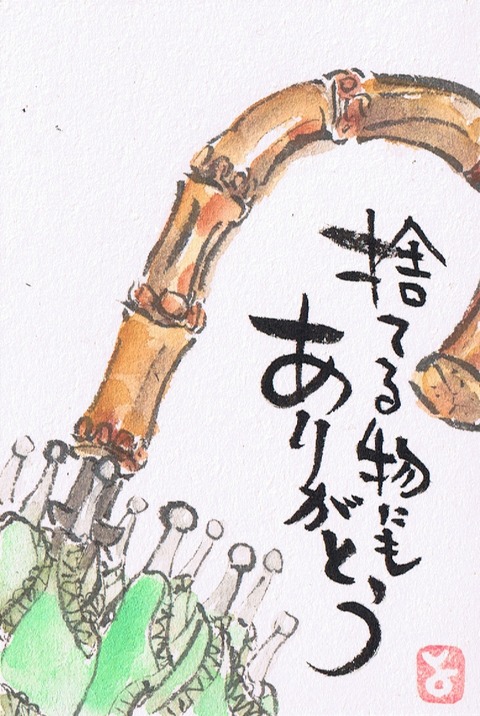 捨てる物にも
ありがとう